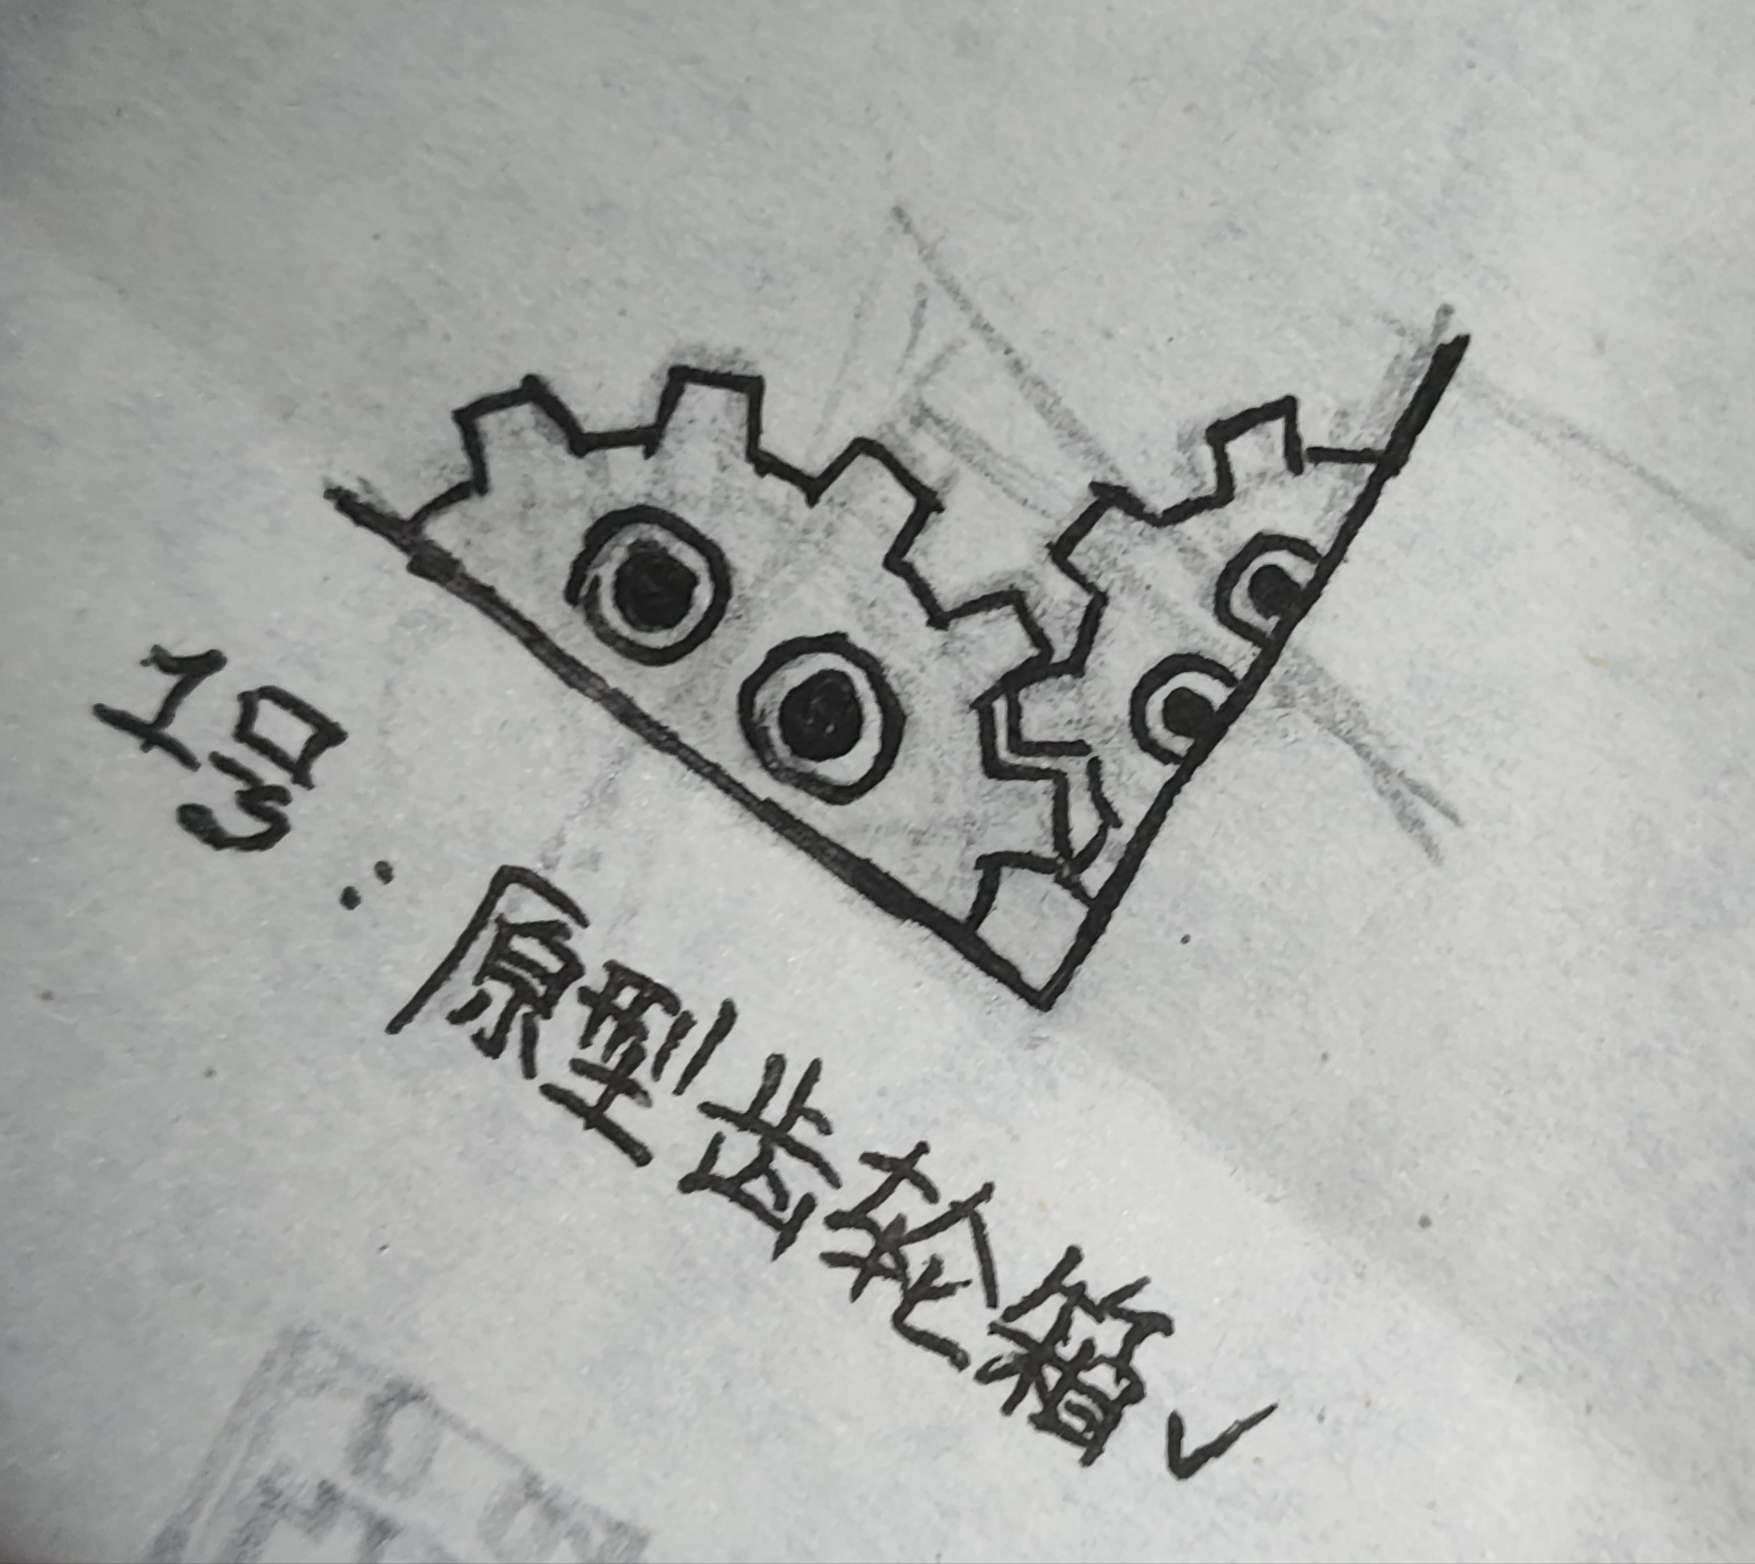 1号：原型齿轮箱✓